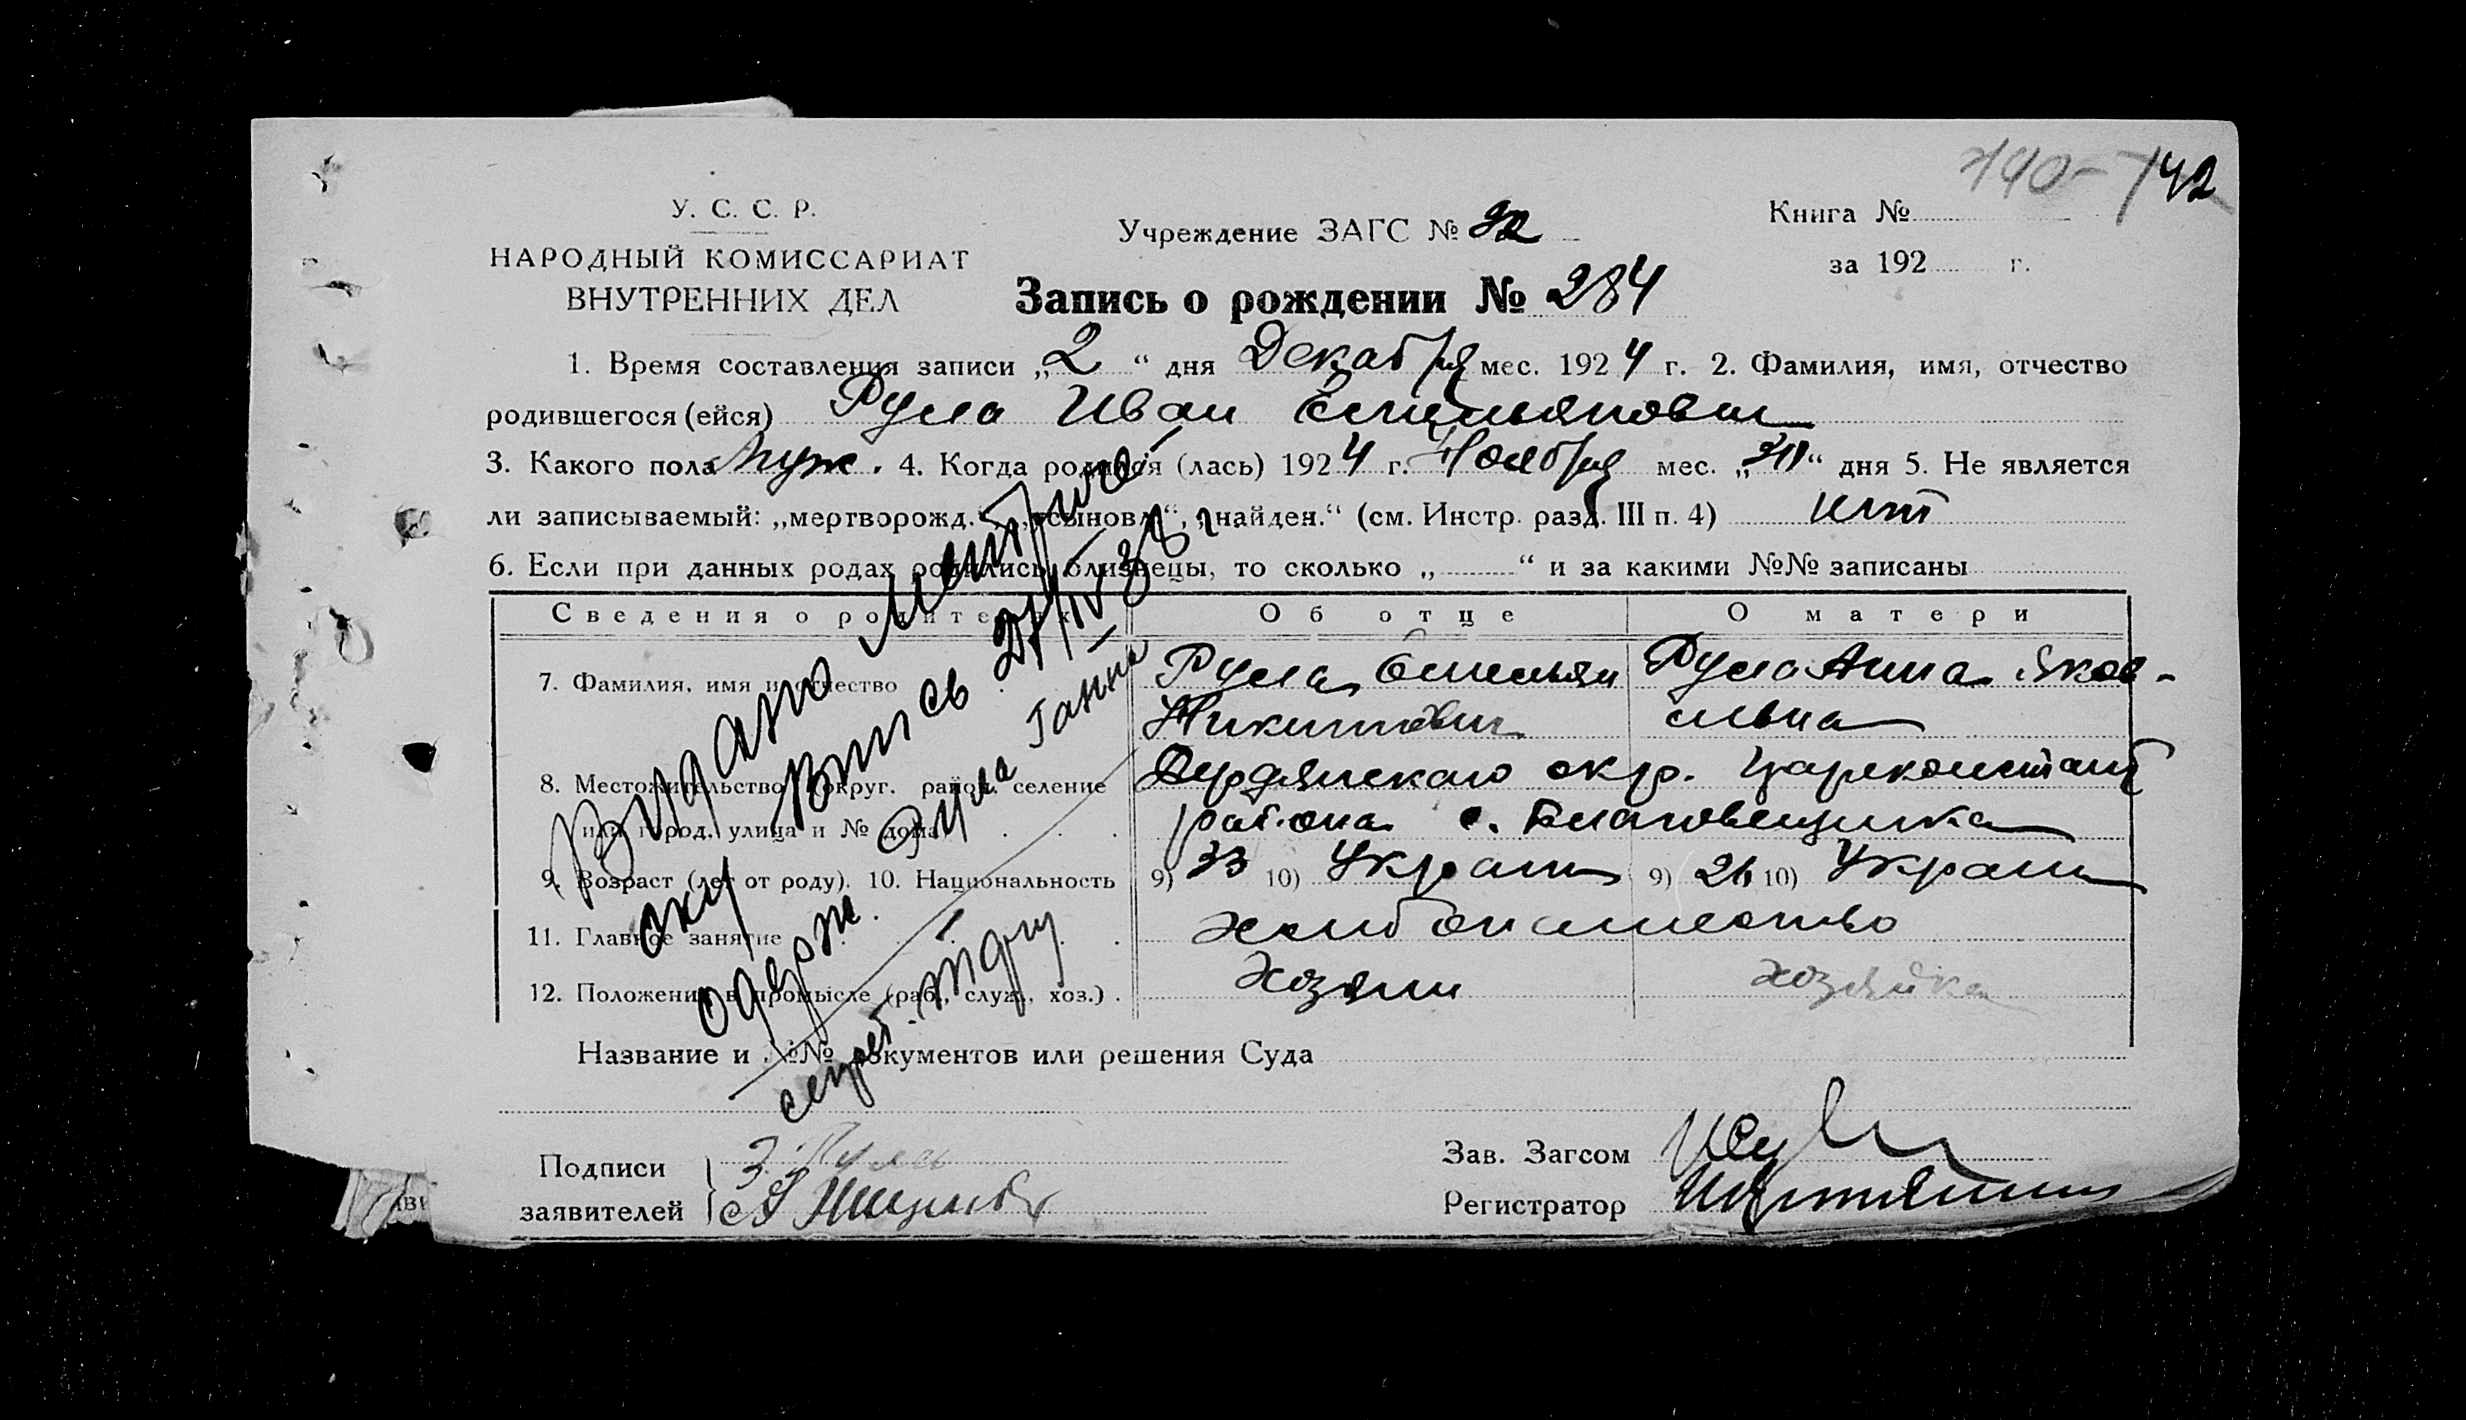 140-142
У. С. С. Р.
НАРОДНЫЙ КОМИССАРИАТ
ВНУТРЕННИХ ДЕЛ
Учреждение ЗАГС №
Книга №
за 192 г.
Запись о рождении № 284
1. Время составления записи „2“ дня Декабря мес. 1924 г. 2. Фамилия, имя, отчество
родившегося (ейся) Рула Иван Емельянович
3. Какого пола Муж. 4. Когда родился (лась) 1924 г. Ноября мес. „ “ дня 5. Не является
ли записываемый: „мертворожд.“, „усыновл“, „найден.“ (см. Инстр. разд. III п. 4) нет
6. Если при данных родах родились близнецы, то сколько „ “ и за какими №№ записаны
Сведения о родителях Об отце О матери
7. Фамилия, имя и отчество Рула Емельян Никитович Рула Анна Яковльвна
8. Местожительство (округ. район. селение
или город, улица и № дома) Бердянского окр. Цареконстант района с. Благовещенка
9. Возраст (лет от роду). 10. Национальность 9) 33 10) Украин 9) 26 10) Украин
11. Главное занятие хлебопашество
12. Положение в промысле (раб., служ., хоз.) Хозяин хозяйка
Название и №№ документов или решения Суда
Видано метричний
Випись 27/IV 38 г
одерж. Рула Ганна
секрет.
Подписи
заявителей
Рула
Зав. Загсом
Регистратор